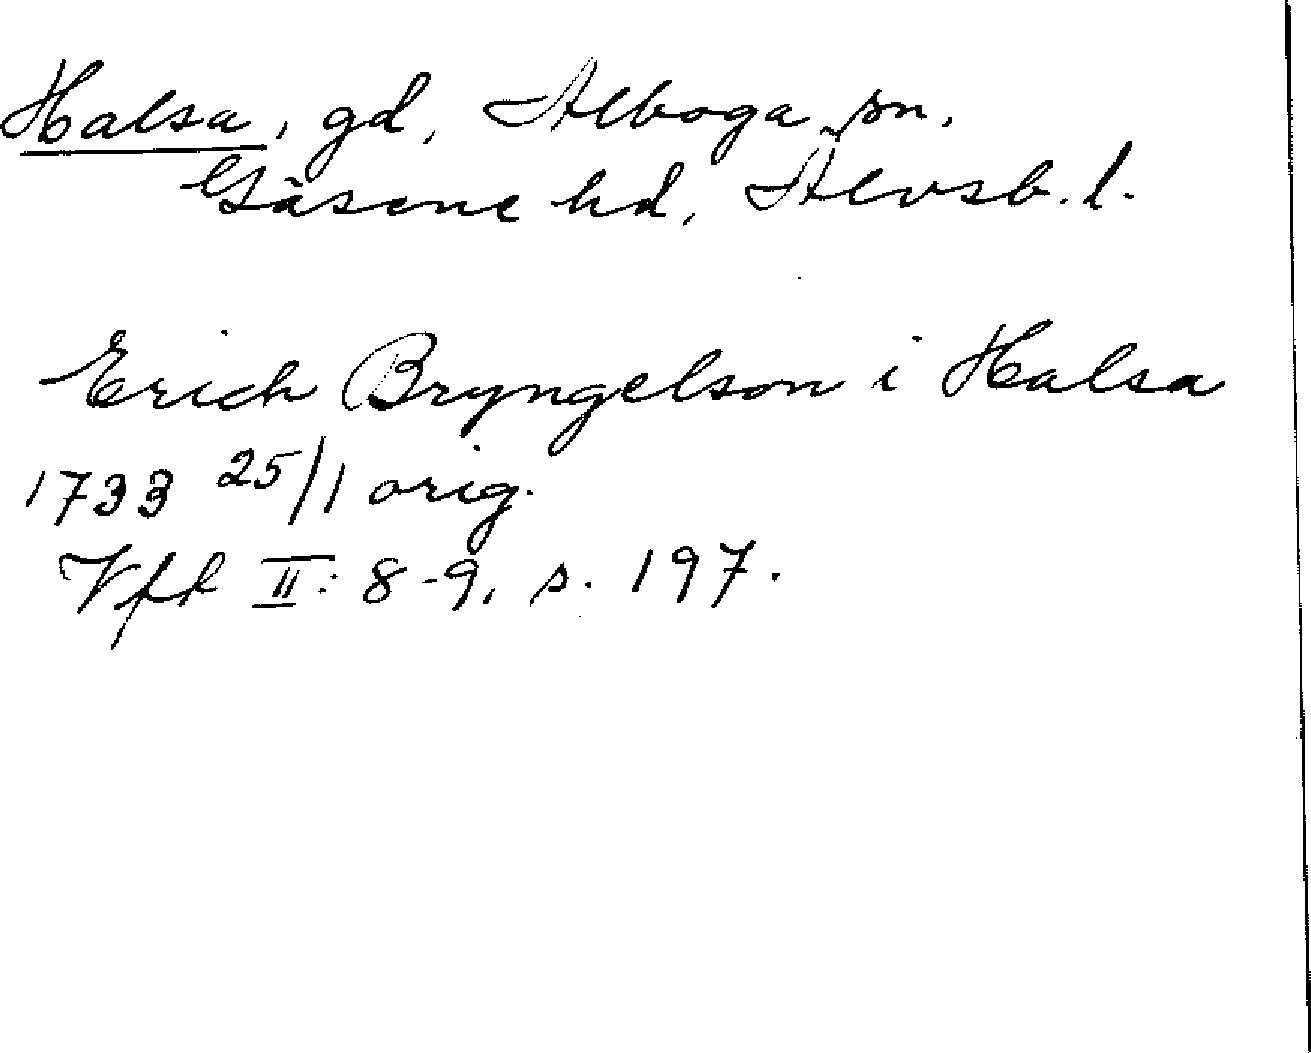 Halsa, gd, Alboga sn,
Gäsene hd, Älvsb. l.
Erich Bryngelson i Halsa
1733 25/1 orig.
Vff II: 8-9, s. 197.